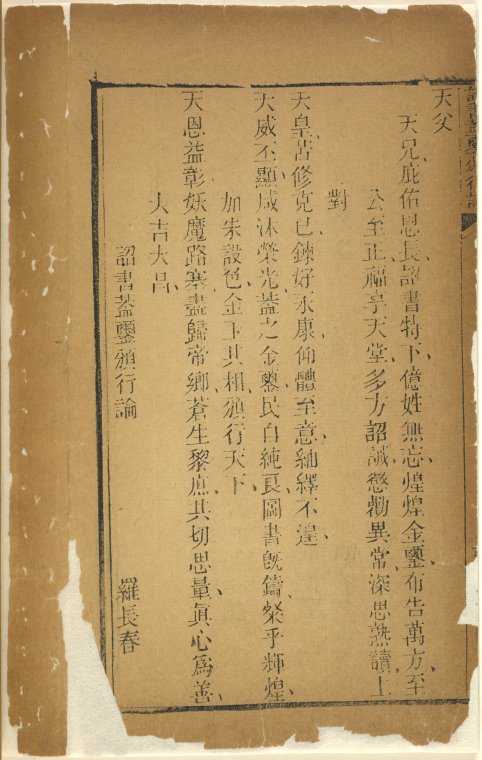 詔書蓋璽頒行論
天父
天兄庇佑恩長、詔書特下、億姓無忘、煌煌金璽、布告萬方、至
公至正、福享天堂、多方詔誡、懲勸異常、深思熟讀、上
對
天皇、苦修克己、鍊好永康、仰體至意、紬繹不遑、
天威丕顯、咸沐榮光、蓋之金璽、民自純良、圖書旣鑄、粲乎輝煌、
加朱設色、金玉其相、頒行天下、
天恩益彰、妖魔路塞、盡歸帝鄉、蒼生黎庶、其切思量、眞心爲善、
大吉大昌、
詔書蓋璽頒行論
羅長春